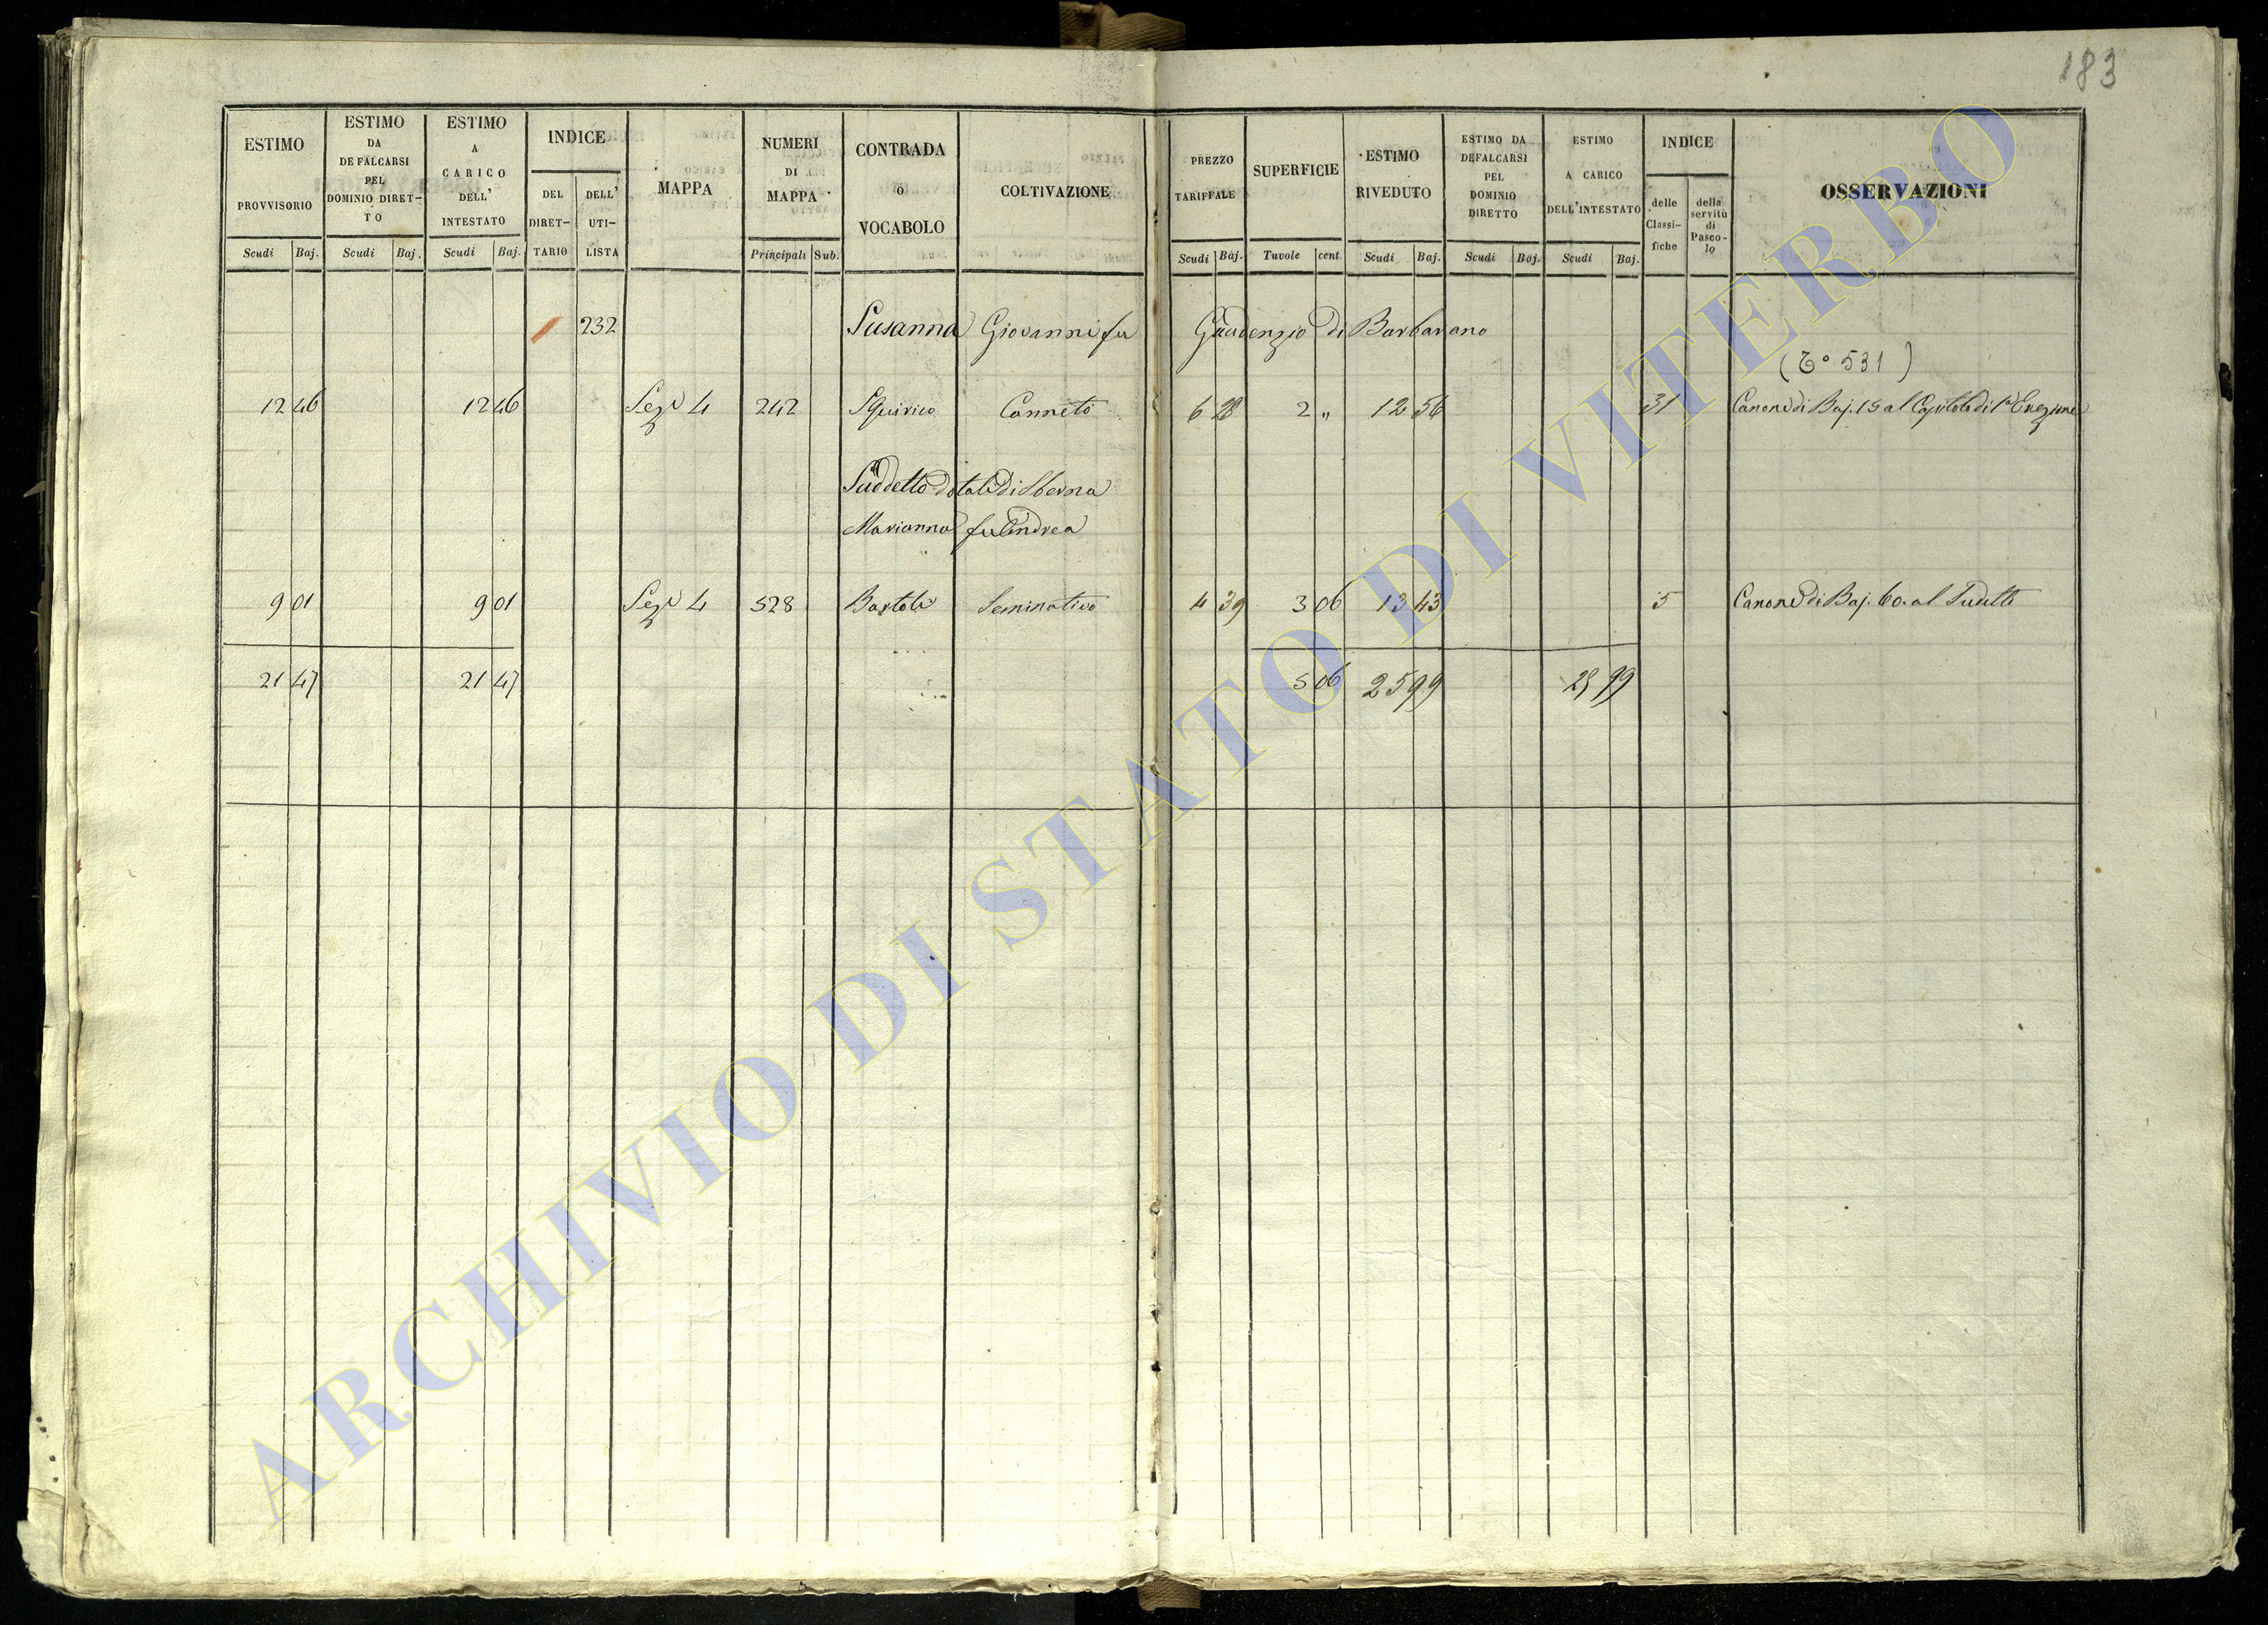 183
ESTIMO PROVVISORIO Scudi Baj. ESTIMO DA DEFALCARSI PEL DOMINIO DIRETTO Scudi Baj. ESTIMO A CARICO DELL' INTESTATO Scudi Baj. INDICE DEL DIRETTARIO DELL' UTILISTA MAPPA NUMERI DI MAPPA Principali Sub. CONTRADA ó VOCABOLO COLTIVAZIONE PREZZO TARIFFALE Scudi Baj. SUPERFICIE Tavole cent. ESTIMO RIVEDUTO Scudi Baj. ESTIMO DA DEFALCARSI PEL DOMINIO DIRETTO Scudi Baj. ESTIMO A CARICO DELL'INTESTATO Scudi Baj. INDICE delle Classifiche della servitù di Pascolo OSSERVAZIONI
232 Susanna Giovanni fu Gaudenzio di Barbarano
(T° 531)
12 46 12 46 Seze 4 242 Squirico Canneto 6 28 2 „ 12 56 31 Canone di Baj. 15 al Capitolo di
Suddetto dotali di
Marianna fu Andrea
9 01 9 01 Seze 4 528 Bartoli Seminativo 4 39 3 06 13 43 5 Canone di Baj. 60. al
21 47 21 47 5 06 25 99 25 99
ARCHIVIO DI STATO DI VITERBO